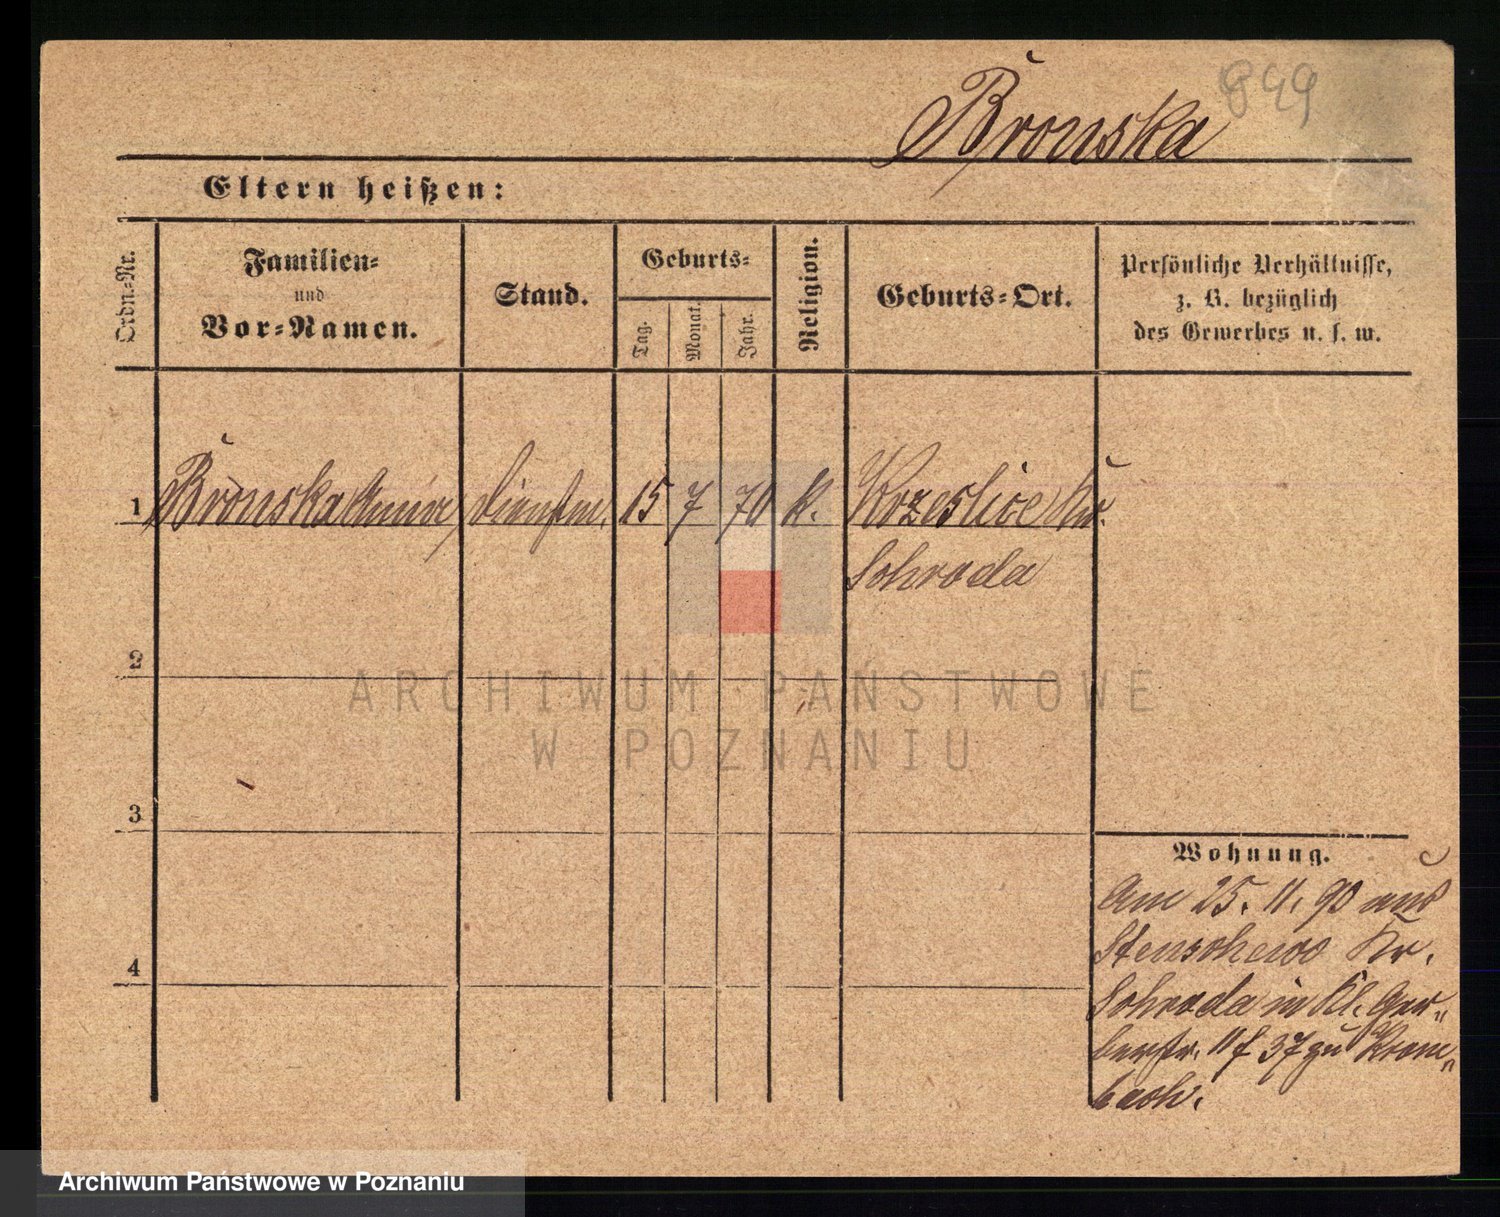 899
Bronska
Eltern heißen:
Ordn.-Nr.
Familien-
und
Vor-Namen.
Stand.
Geburts-
Tag.
Monat.
Jahr.
Religion.
Geburts-Ort.
Persönliche Verhältnisse,
z. B. bezüglich
des Gewerbes u. s. w.
1 Bronska Dienstm. 15 7 70 k. Krzeslice Kr.
Schroda
2
ARCHIWUM PAŃSTWOWE
W POZNANIU
3
Wohnung.
Am 25. 11. 90 aus
Stenschewo Kr.
4
Schroda in Kl. Ger-
berstr. 11 f 37 zu Krom-
bach.
Archiwum Państwowe w Poznaniu